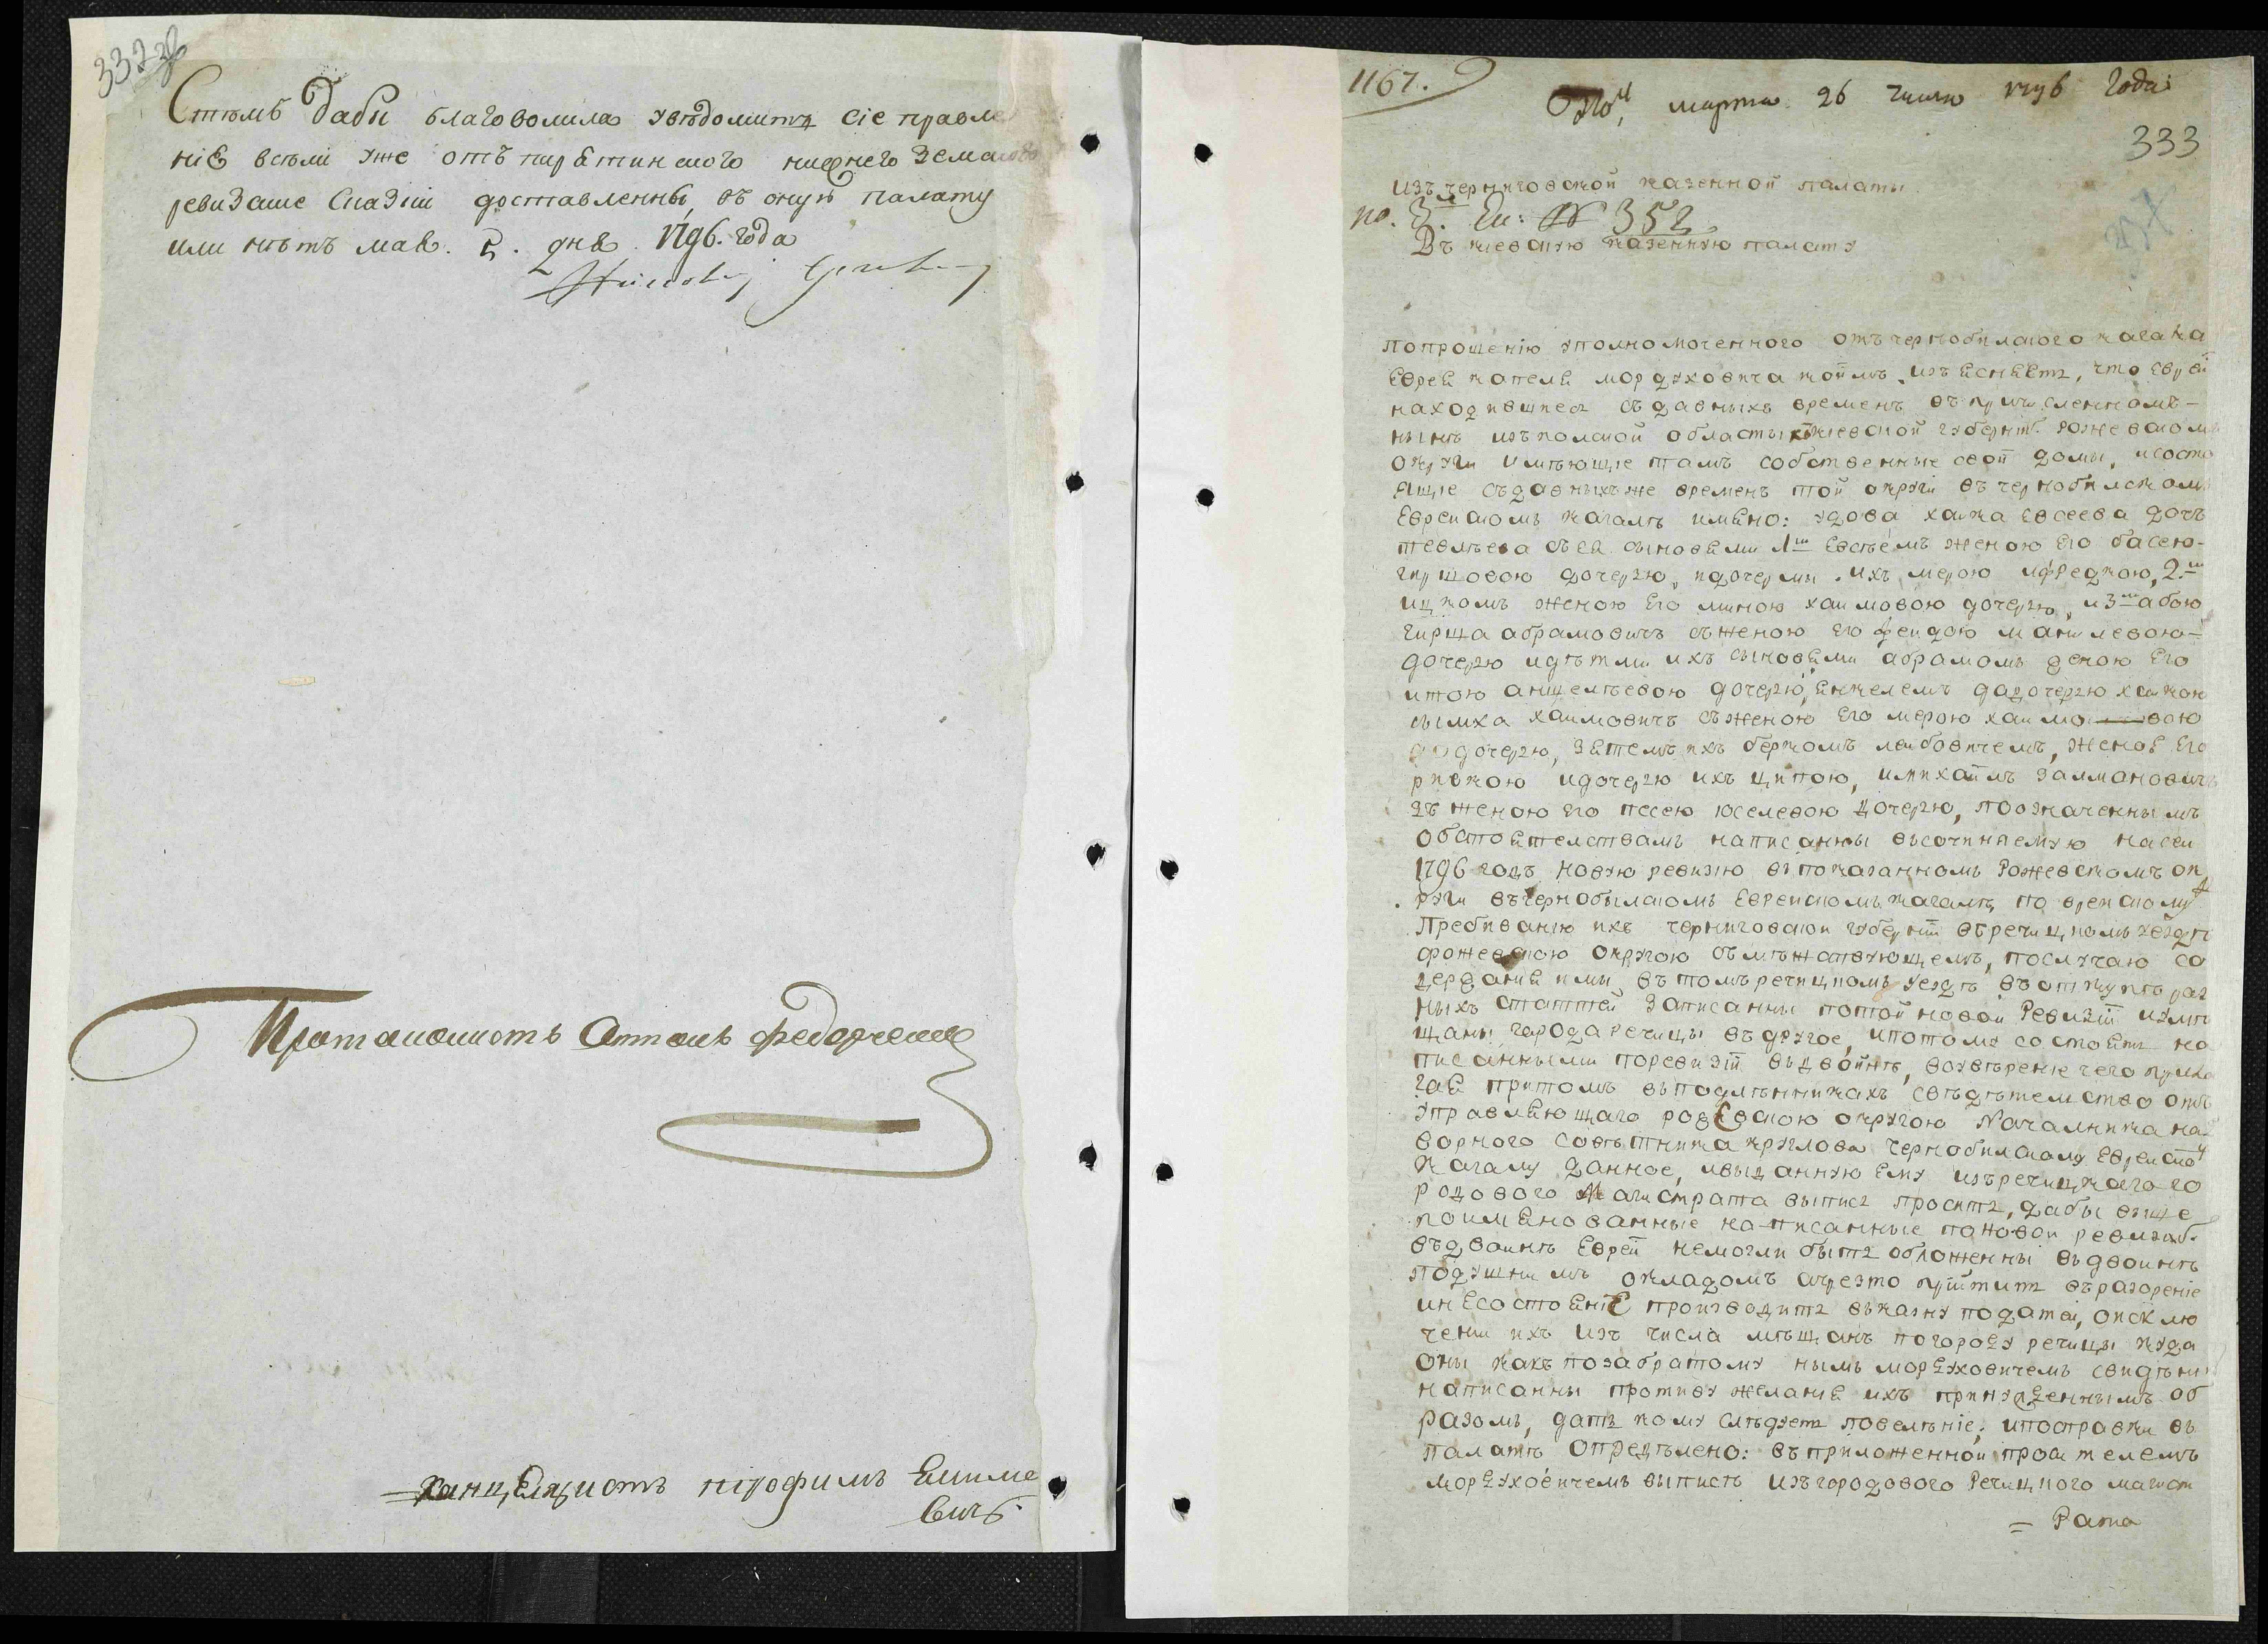 332 зв
Стѣмъ дабы благоволила увѣдомить сіе правле
ніе всѣли уже отъ пирятинского нижнего земского
ревизские сказки доставленны въ оную палату
или нѣтъ мая. 5. дня 1796. года
Протаколистъ Антонъ Федорченко
Канцеляристъ трофимъ Емилие
вичъ.
1167.
марта 26 числа 1796 года
333
изъ черниговской казенной палаты
по. 3. Ек: № 352
Въ киевскую казенную палату
попрошенію уполномоченного отъ чернобилского кагала
Еврея капеля мордуховича коймъ изъясняетъ, что Евреи
находившиесь съ давныхъ временъ въ причисленномъ-
нынѣ изъ полской областы къ кіевской губерніи рожевском
округи имѣющие тамъ собственные свои домы, и состо
ящіе съ давныхъ же временъ той округи въ чернобилском
Еврейскомъ кагалѣ имяно: удова хайка Евсеева дочь
тевлѣева съ ея сыновями 1м Евсѣемъ женою Его басею-
гиршовою дочерзю, и дочерми их мерою и фрейдкою, 2.м
ицкомъ женою Его миною хаимовою дочерю, и 3м абою
гирша абрамовичъ съ женою Его фейдою манилевою-
дочерю и дѣтми ихъ сыновями абрамомъ женою Его
итою аншелѣевою дочерю, янкелемъ да дочерю хайкою
сымха хаимовичъ съ женою Его мерою хаимо вою
дочерю, зятемъ ихъ беркомъ лейбовичемъ, женою Его
ривкою и дочерю ихъ ципою, и михаилъ залмановичъ
зъ женою Его песею юселевою дочерю, по означеннымъ
обстоятелствамъ написанны въ сочиняемую на сей
1796 годъ новую ревизію въ показанномъ Рожевскомъ ок
руги въ чернобылскомъ Еврейскомъ кагалѣ, по времскому
Пребиванію ихъ черниговской губерніи въ речицкомъ уездѣ
с рожевскою округою съмѣжствующемъ, по случаю со
держания ими въ томъ речицкомъ уездѣ въ откупѣ раз
ныхъ статтей записанны по той новой Ревизіи и умѣ
щаны города речицы въ другое, и потому состоятъ на
писанными по ревизіи въ двойнѣ, во увѣрение чего прила
гая притомъ въ подлѣнникахъ свѣдѣтелство отъ
управляющаго рожевскою округою Началника на
ворного совѣтника круглова чернобилскому Еврейско
кагалу данное, и выданную Ему изъ речицкаго го
родового Магистрата выпись просить, дабы више
поимянованные написанные по новой ревизіи
въ двоинѣ Еврей немогли быть обложенны въ двоинѣ
подушнимъ окладомъ а чрезто прійтить въ разореніе
и несостояніе производить въ казну податей, о исклю
чении ихъ изъ числа мѣщанъ по городу речицы куда
оны какъ
написанны противу желания ихъ принужденнымъ об
разомъ, дать кому слѣдуетъ повелѣніе; и посправки въ
палатѣ опредѣлено: въ приложенной просителемъ
мордуховичемъ выписѣ изъ городового Речицкого магист
= Рата